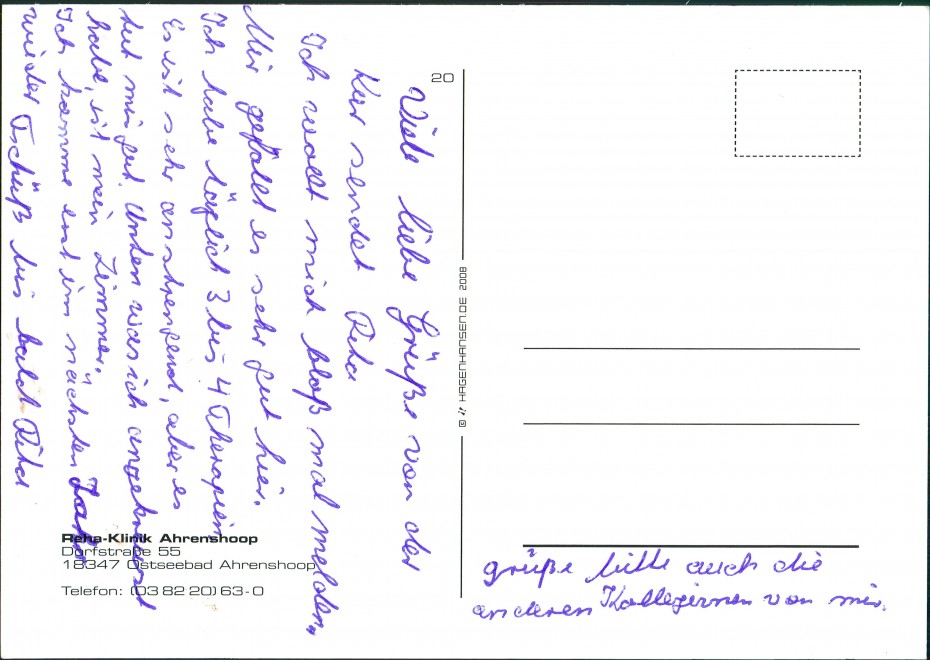 Viele liebe Grüße von der
Kur sendet Rita
Ich wollt mich bloß mal melden,
Mir gefällt es sehr gut hier.
Ich habe täglich 3 bis 4 Therapien
Es ist sehr anstrengend, aber es
tut mir gut. Unten was ich angekreuzt
habe, ist mein Zimmer.
Ich komme erst im nächsten Jahr
wieder Tschüß bis bald Rita
20
© HAGENHANSEN.DE 2008
Reha-Klinik Ahrenshoop
Dorfstraße 55
18347 Ostseebad Ahrenshoop
Telefon: (03 82 20) 63-0
grüße bitte auch die
anderen Kolleginnen von mir.